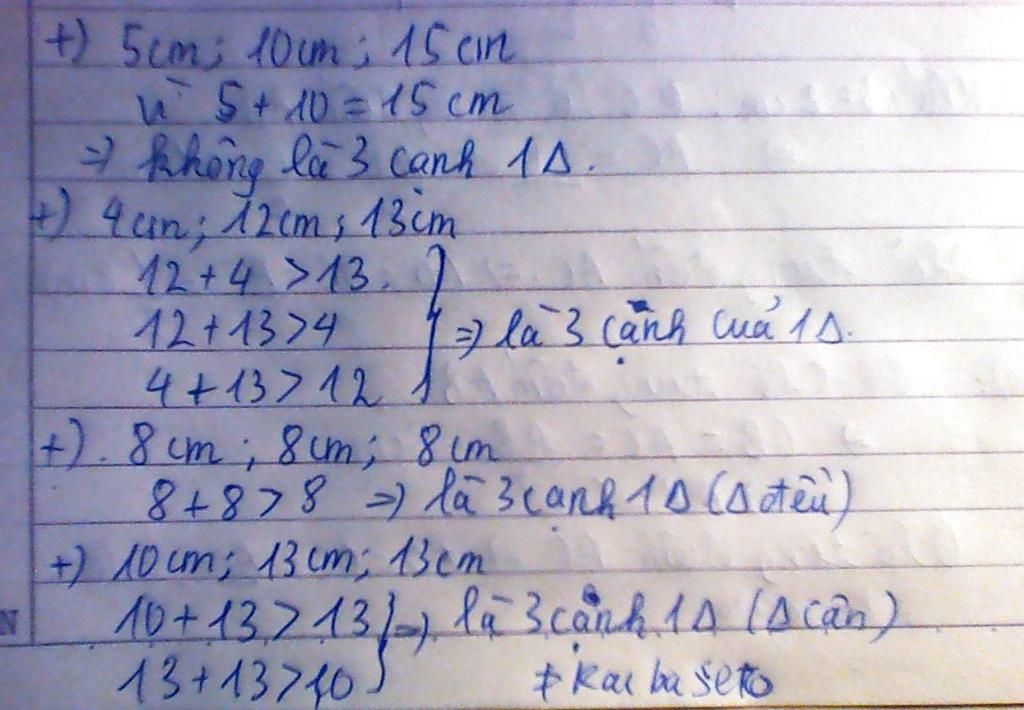 +) 5cm; 10cm; 15cm
vì 5 + 10 = 15 cm
=> không là 3 cạnh 1Δ.
+) 4cm; 12cm; 13cm
12 + 4 > 13.
12 + 13 > 4 => là 3 cạnh của 1Δ.
4 + 13 > 12
+). 8cm; 8cm; 8cm
8 + 8 > 8 => là 3 cạnh 1Δ (Δ đều)
+) 10cm; 13cm; 13cm
10 + 13 > 13 => là 3 cạnh 1Δ (Δ cân)
13 + 13 > 10